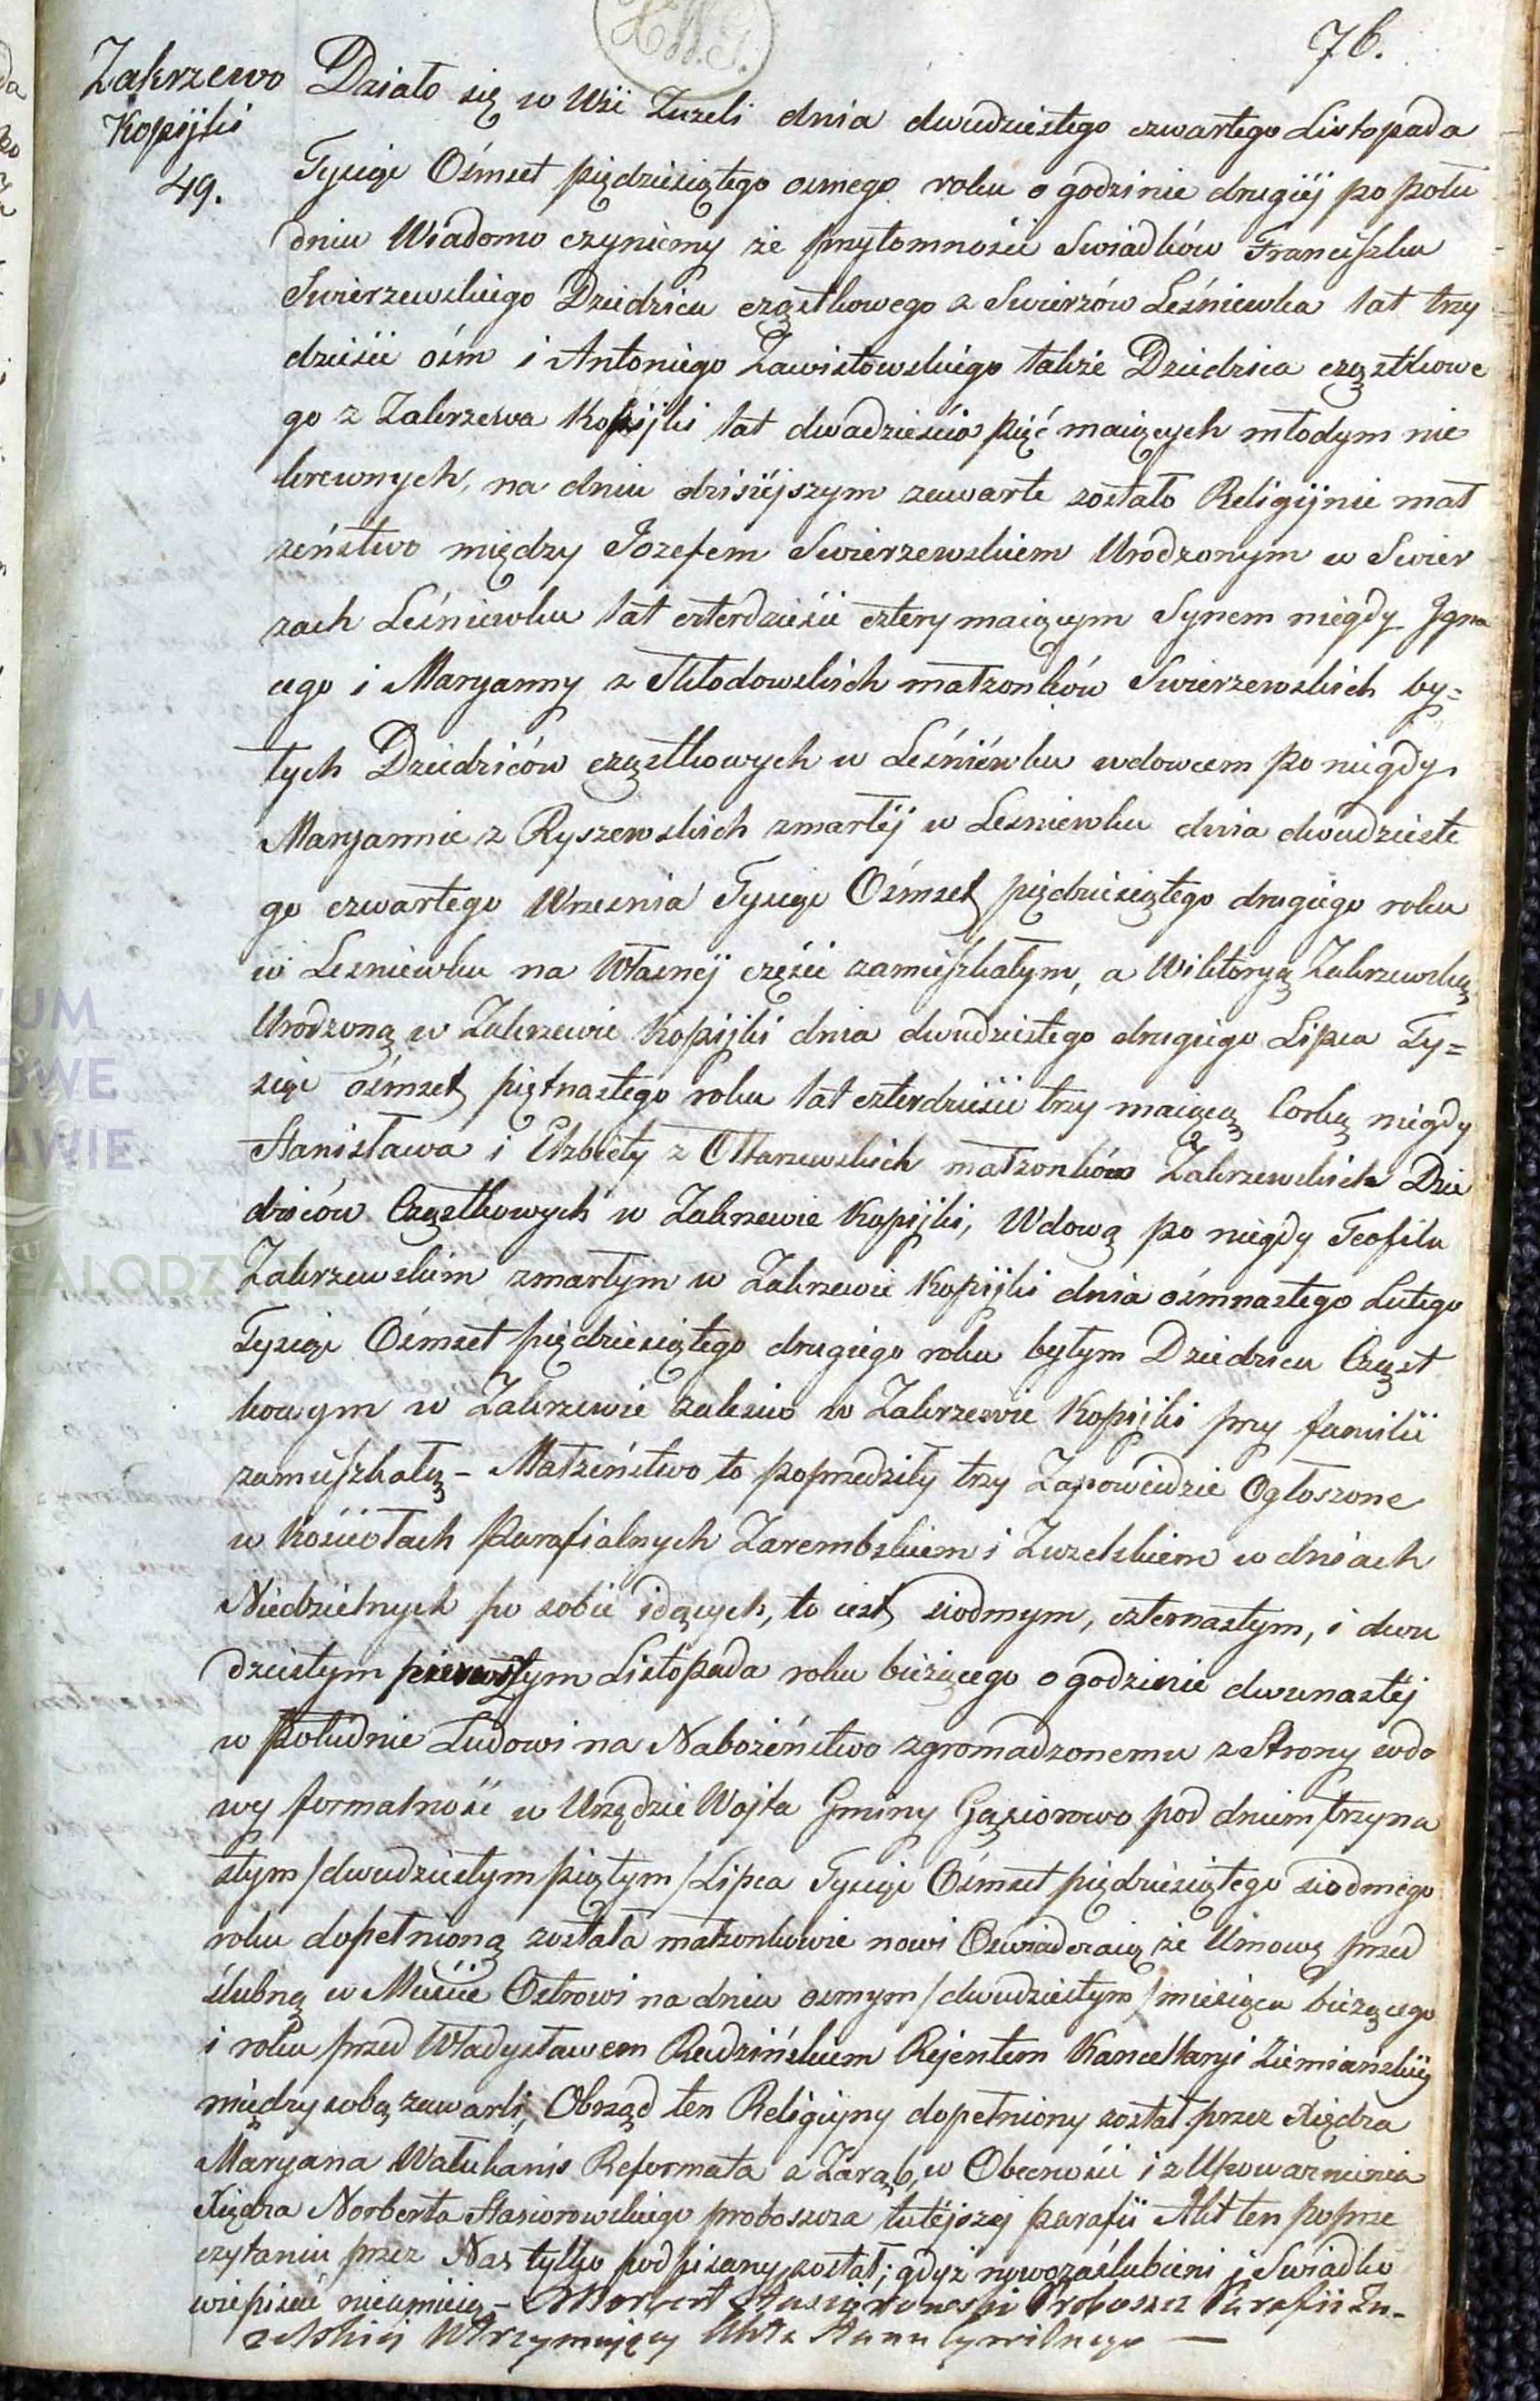 76.
Zakrzewo
Kopijki
49.
Działo się w Wsi Zuzeli dnia dwudziestego czwartego Listopada
Tysiąc Ośmset pięćdziesiątego osmego roku o godzinie drugiéj po połu
dniu Wiadomo czyniemy że przytomności Swiadków Franciszka
Swierzewskiego Dziedzica cząstkowego z Swierzów Leśniewka lat trzy
dzieści óśm i Antoniego Zawistowskiego także Dziedzica cząstkowe
go z Zakrzewa Kopijki lat dwadzieścia pięć maiących młodym nie
krewnych, na dniu dzisiéjszym zawarte zostało Religijnie mał
żeństwo między Jozefem Swierzewskiem Urodzonym w Swier
zach Leśniewku lat czterdzieści cztery maiącym Synem niegdy Igna
cego i Maryanny z Skłodowskich małżonków Swierzewskich by=
łych Dziedziców cząstkowych w Leśniéwku wdowcem po niegdy
Maryannie z Ryszewskich zmarłéj w Lesniewku dnia dwudzieste
go czwartego Wrzesnia Tysiąc Ośmset pięćdziesiątego drugiego roku
w Lesniewku na Własnéj części zamieszkałym, a Wiktoryą Zakrzewską
Urodzoną w Zakrzewie Kopijki dnia dwudziestego drugiego Lipca Ty=
siąc ośmset piętnastego roku lat czterdzieści trzy maiącą Corką niegdy
Stanisława i Elzbiety z Ołtarzewskich małzonków Zakrzewskich Dzie
dziców Cząstkowych w Zakrzewie Kopijki, Wdową po niegdy Teofilu
Zakrzewskim zmarłym w Zakrzewie Kopijki dnia ośmnastego Lutego
Tysiąc Ośmset pięćdziesiątego drugiego roku byłym Dziedzicu Cząst
kowym w Zakrzewie także w Zakrzewie Kopijki przy familii
zamieszkałą – Małżeństwo to poprzedziły trzy Zapowiedzie Ogłoszone
w Kościołach Parafialnych Zarembskiem i Zuzelskiem w dniach
Niedzielnych po sobie idących, to iest siodmym, czternastym, i dwu
dziestym pierwszym Listopada roku bieżącego o godzinie dwunastéj
w Południe Ludowi na Nabożeństwo zgromadzonemu z Strony wdo
wy formalność w Urzędzie Wojta Gminy Gąsiorowo pod dniem trzyna
stym /dwudziestym piątym/ Lipca Tysiąc Ośmset pięćdziesiątego siodmego
roku dopełnioną została małzonkowie nowi Oswiadczaią że Umowę przed
ślubną w Mieście Ostrowi na dniu osmym /dwudziestym/ miesiąca bieżącego
i roku przed Władysławem Rudzińskiem Rejentem Kancellaryi Ziemiańskiéj
między sobą zawarli, Obrząd ten Religijny dopełniony został przez Xiędza
Maryana Reformata z Zaręb, w Obecności i z Upoważnienia
Xiędza Norberta Stasiorowskiego proboszcza tutéjszej parafii Akt ten poprze
czytaniu przez Nas tylko podpisany został; gdyż nowozaślubieni i Swiadko
wie pisać nieumieią – Norbert Proboszcz Parafii Zu-
zelskiej Utrzymujący Akta Stanu Cywilnego —